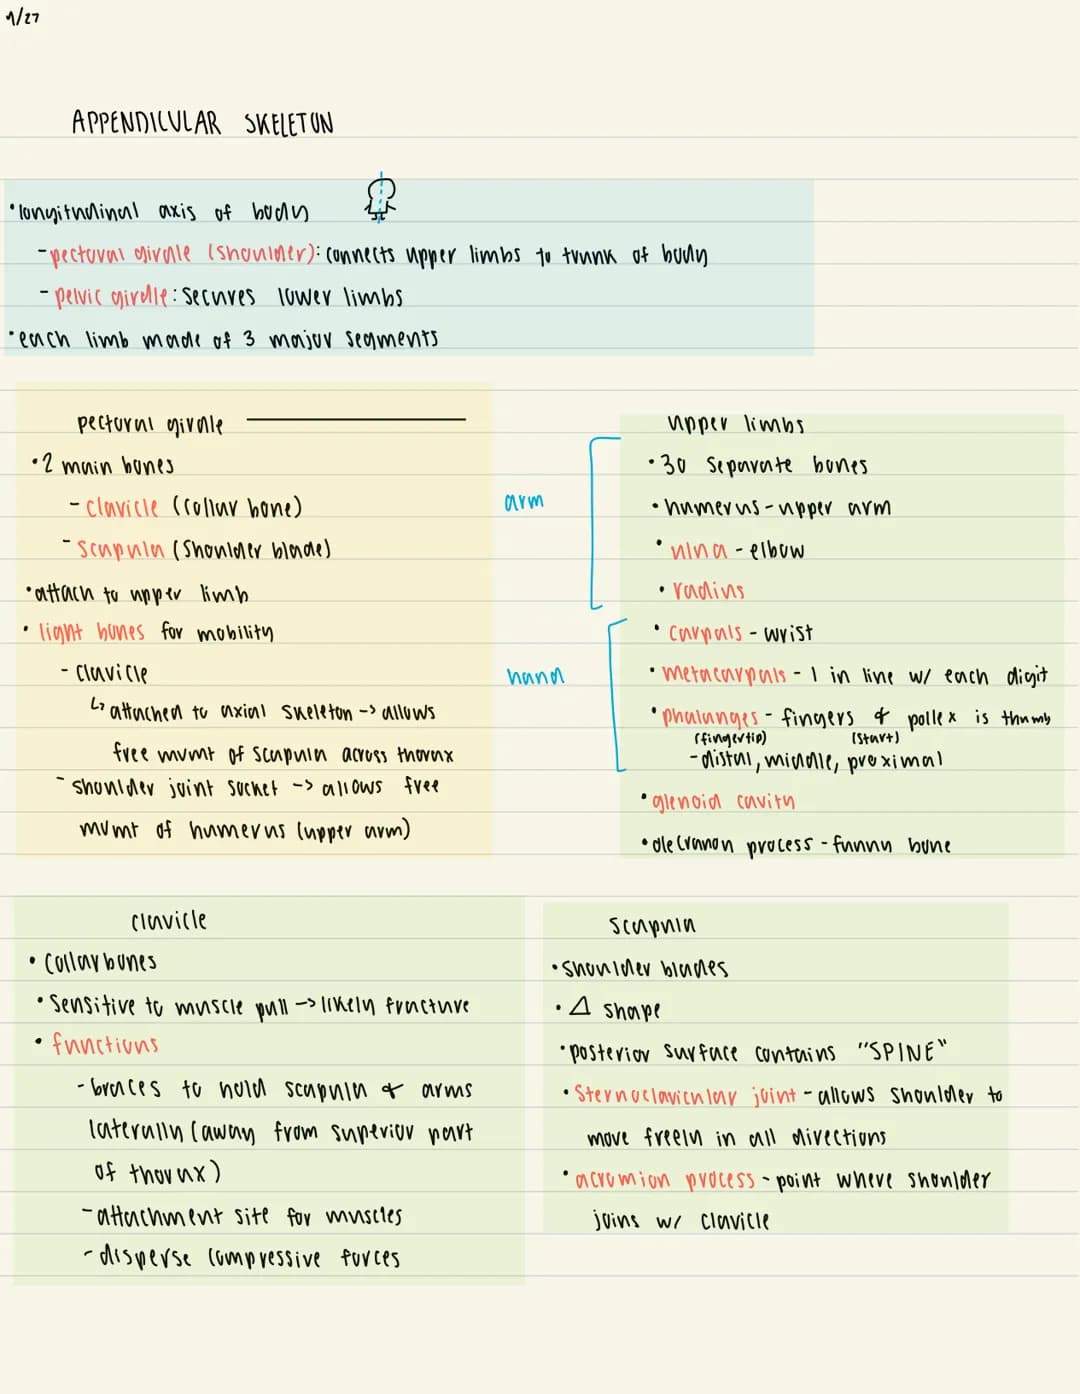 1/27
APPENDICULAR SKELETON
•longitudinal axis of body
-pectoral girdle (shoulder): connects upper limbs to trunk of body
- pelvic girdle: secures lower limbs
•each limb made of 3 major segments
pectoral girdle
•2 main bones
- clavicle (collar bone)
- scapula (shoulder blade)
•attach to upper limb
• light bones for mobility
- clavicle
↳ attached to axial skeleton -> allows
free mvmt of scapula across thorax
- shoulder joint socket -> allows free
mvmt of humerus (upper arm)
arm
hand
upper limbs
•30 separate bones
•humerus-upper arm
•ulna - elbow
•radius
•carpals - wrist
•metacarpals - 1 in line w/ each digit
•phalanges - fingers & pollex is thumb
(fingertip) (start)
-distal, middle, proximal
•glenoid cavity
•olecranon process - funny bone
clavicle
•collarbones
•sensitive to muscle pull -> likely fracture
•functions
-braces to hold scapula & arms
laterally (away from superior part
of thorax)
-attachment site for muscles
-disperse compressive forces
scapula
•shoulder blades
•△ shape
•posterior surface contains "SPINE"
•sternoclavicular joint - allows shoulder to
move freely in all directions
•acromion process - point where shoulder
joins w/ clavicle